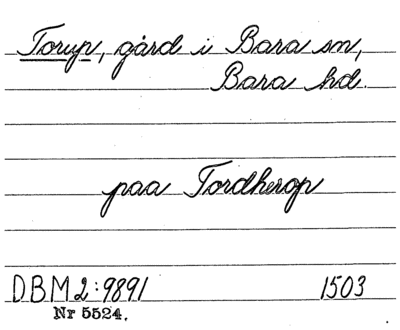 Torup, gård i Bara sn,
Bara hd.
paa Tordherop
DBM2:9891 1503
Nr 5524.